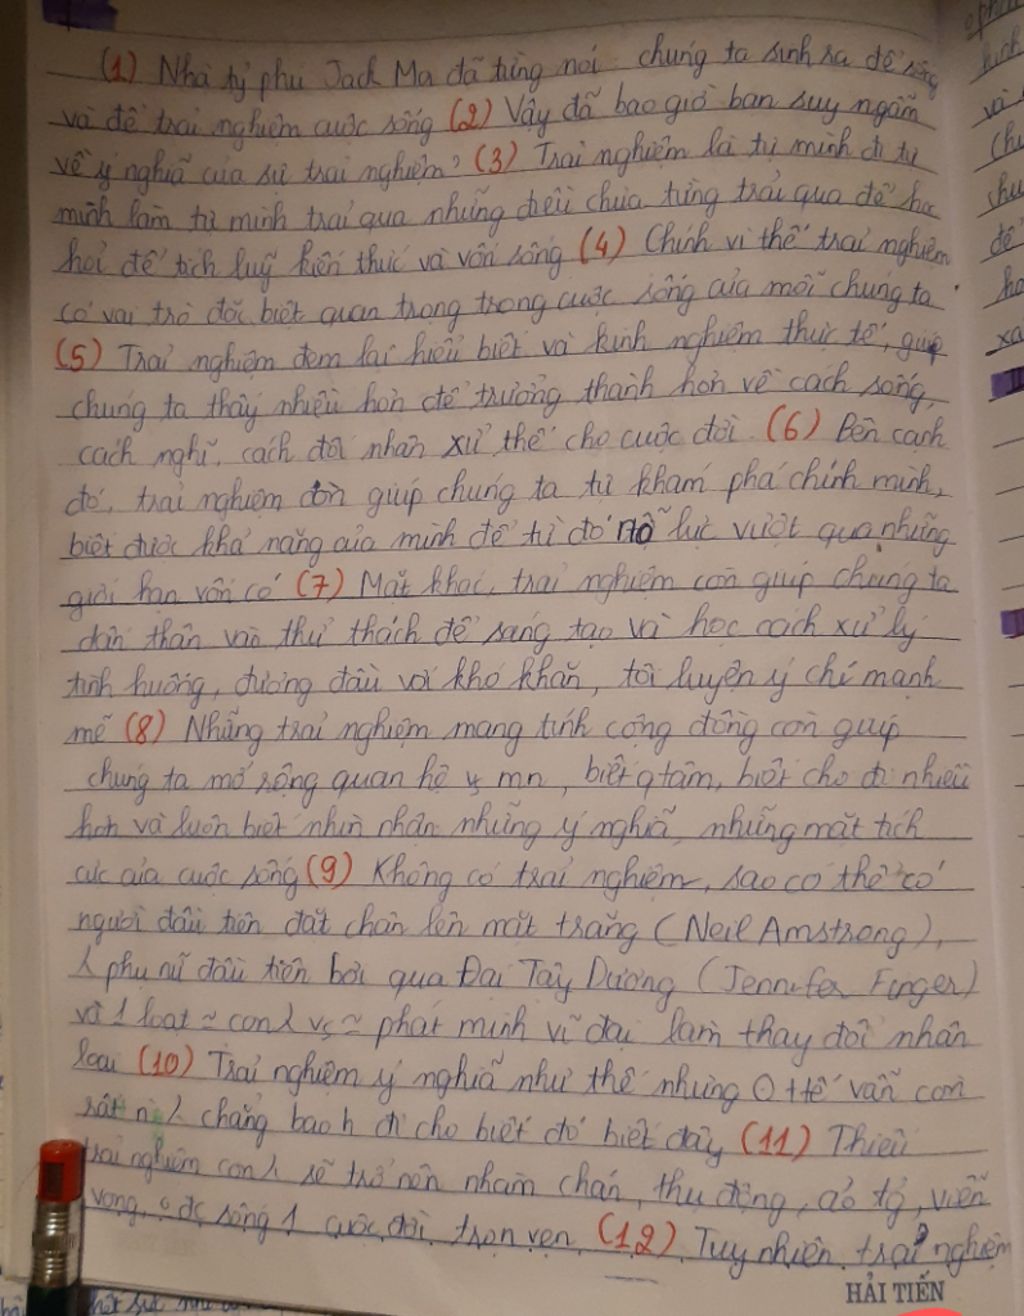 (1) Nhà tỷ phú Jack Ma đã từng nói: chúng ta sinh ra để sống
và để trải nghiệm cuộc sống (2) Vậy đã bao giờ bạn suy ngẫm
về ý nghĩa của sự trải nghiệm? (3) Trải nghiệm là tự mình đi tự
mình làm tự mình trải qua những điều chưa từng trải qua để học
hỏi để tích luỹ kiến thức và vốn sống (4) Chính vì thế trải nghiệm
có vai trò đặc biệt quan trọng trong cuộc sống của mỗi chúng ta.
(5) Trải nghiệm đem lại hiểu biết và kinh nghiệm thực tế, giúp
chúng ta thấy nhiều hơn để trưởng thành hơn về cách sống,
cách nghĩ, cách đối nhân xử thế cho cuộc đời. (6) Bên cạnh
đó, trải nghiệm còn giúp chúng ta tự khám phá chính mình,
biết được khả năng của mình để từ đó nỗ lực vượt qua những
giới hạn vốn có (7) Mặt khác, trải nghiệm còn giúp chúng ta
dấn thân vào thử thách để sáng tạo và học cách xử lý
tình huống, đương đầu với khó khăn, tôi luyện ý chí mạnh
mẽ (8) Những trải nghiệm mang tính cộng đồng còn giúp
chúng ta mở rộng quan hệ vs mn, biết qtâm, biết cho đi nhiều
hơn và luôn biết nhìn nhận những ý nghĩa, những mặt tích
cực của cuộc sống (9) Không có trải nghiệm, sao có thể có
người đầu tiên đặt chân lên mặt trăng (Neil Amstrong),
phụ nữ đầu tiên bơi qua Đại Tây Dương (Jennifer Finger)
và 1 loạt ~ con vs ~ phát minh vĩ đại làm thay đổi nhân
loại (10) Trải nghiệm ý nghĩa như thế nhưng vẫn còn
rất chẳng bao h đi cho biết đó biết đây (11) Thiếu
trải nghiệm con sẽ trở nên nhàm chán, thụ động, ảo tg, viển
vông, đc sống 1 cuộc đời trọn vẹn. (12) Tuy nhiên, trải nghiệm
HẢI TIẾN